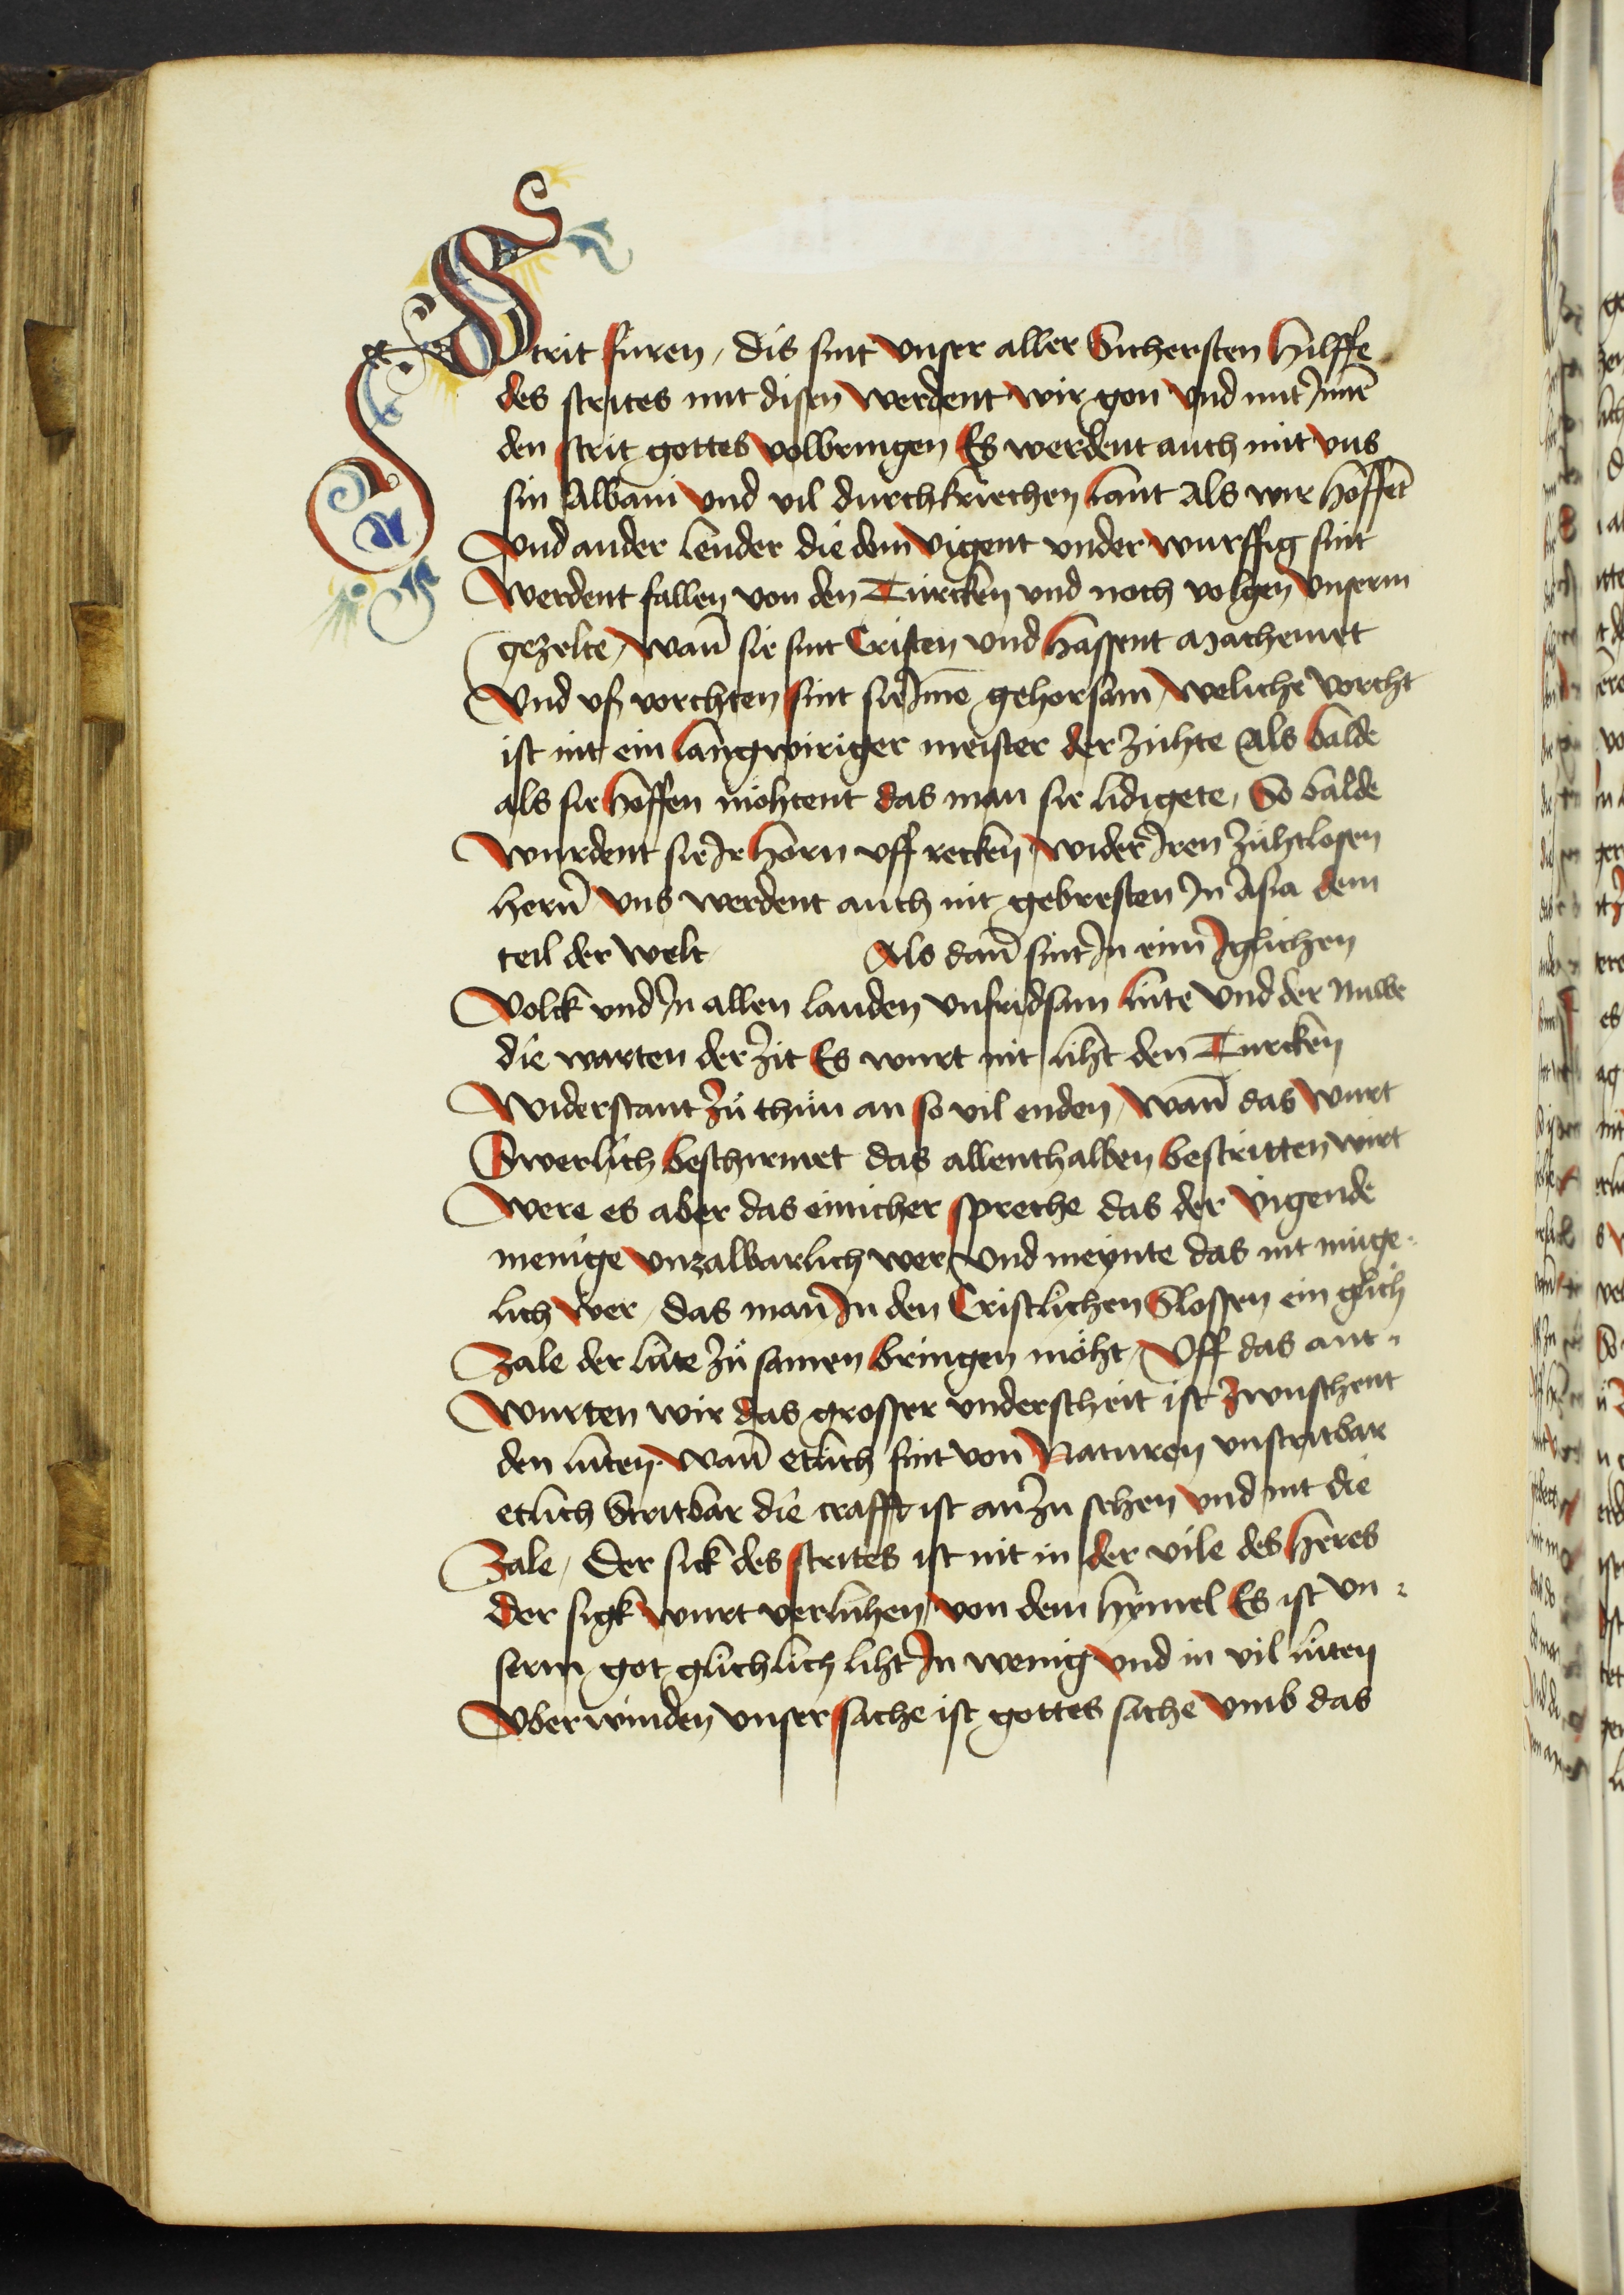 Strit füren, dis sint vnser aller Sichersten hilffe
des strites mit disen werdent wir gon vnd mit Jnnē
den strit gottes volbringen Es werdent auch mit vns
sin Albani vnd vil durch kriechen lant Als wir hoffēt
Vnd ander lender die dem vigent vnder wurffig sint
Werdent fallen von den Türcken vnd noch volgen vnserm
gezelte, wañ sie sint Cristen vnd hassent Machemet
Vnd vß vorchten sint sie Jme gehorsam, weliche vorcht
ist nit ein langwiriger meister der zühte Als balde
als sie hoffen möhtent das man sie lidigete, So balde
Wurdent sie Ir horn vff recken wider Iren zühtlosen
herñ vns werdent auch nit gebresten Jn Asia dem
teil der welt Als dañ sint Jn eim Iglichen
Volck vnd Jn allen landen vnfridsam lüte vnd der nuwe
die warten der zit Es wurt nit liht den Turcken
Widerstant zů thůn an so vil enden, wañ das wurt
Swerlich beschirmet das allenthalben bestritten wirt
Were es aber das einicher spreche das der vigende
menige vnzalbarlich wer, vnd meynte das nit müge
lich wer, das man Jn den Cristlichen Slossen ein glich
Zale der lüte zů samen bringen möht, Vff das ant
Wurten wir das grosser vnderscheit ist zwuschent
den lüten. wañ etlich sint von Naturen vnstritbar
etlich Stritbar die crafft ist an zu sehen vnd nit die
Zale, Der sick des strites ist nit in der vile des heres
der sigk wurt verlühen, von dem hymel Es ist vn
serm got glichlich liht Jn wenig vnd in vil lüten
Vberwinden vnser sache ist gottes sache vmb das